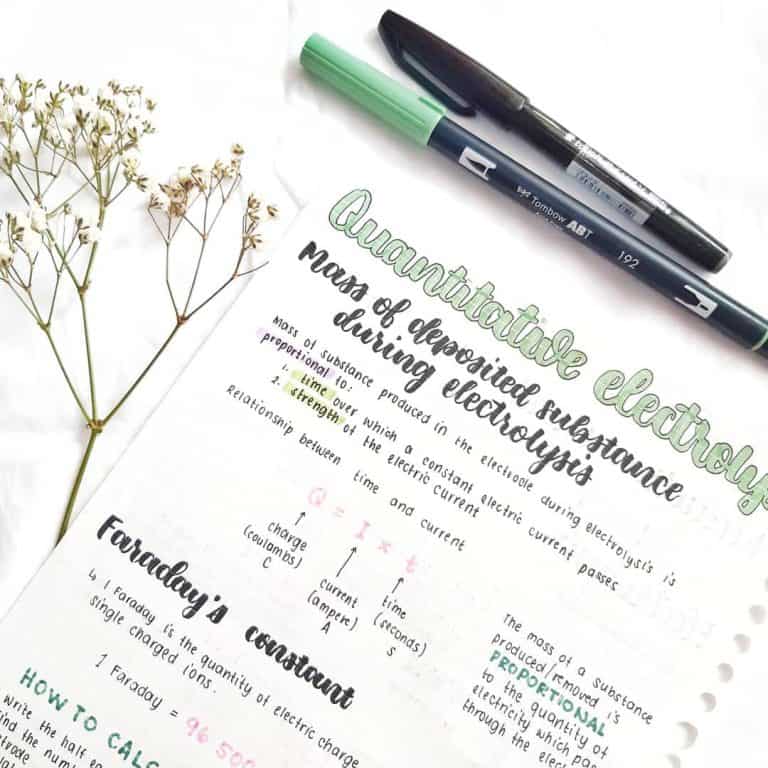 Tombow ABT
192
Quantitative electroly
Mass of deposited substance
during electrolysis
Mass of substance produced in the electrode during electrolysis is
proportional to:
1. time over which a constant electric current passes
2. strength of the electric current
Relationship between time and current
Q = I × t
charge
(coulombs)
C
current
(ampere)
A
time
(seconds)
s
Faraday's constant
↳ 1 Faraday is the quantity of electric charge
single charged ions.
1 Faraday = 96 500
The mass of a substance
produced/removed is
PROPORTIONAL
to the quantity of
electricity which pas
through the elect
HOW TO CALC
write the half e
find the numb